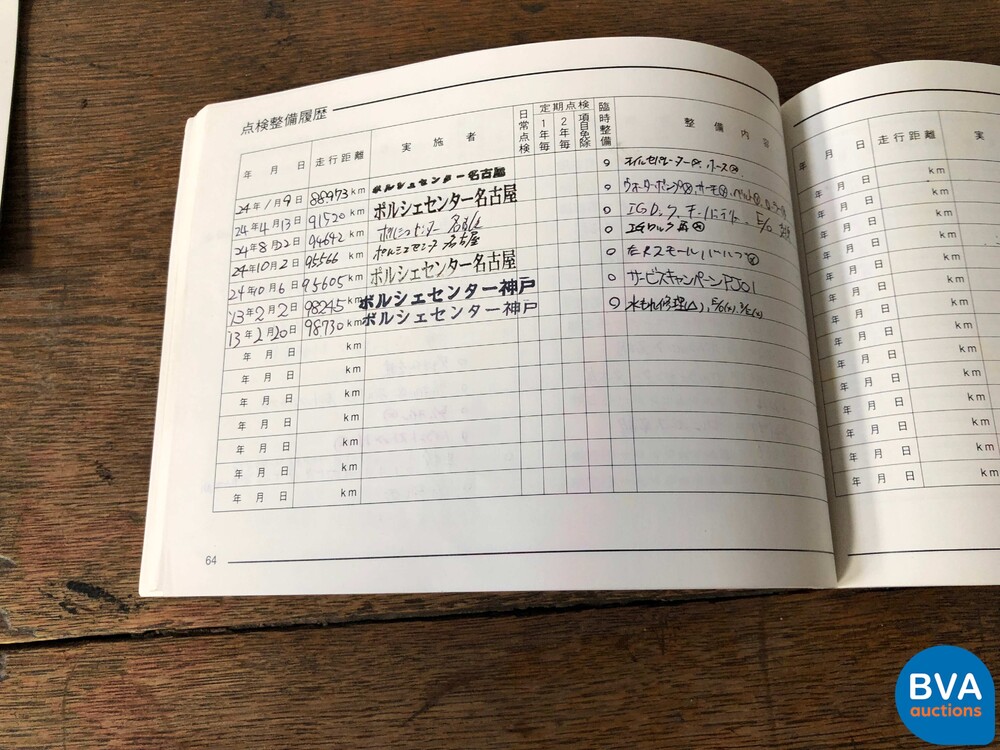 点検整備履歴
年 月 日 走行距離 実施者 日常点検 定期点検 1年毎 2年毎 項目免除 臨時整備 整備内容
24年1月9日 88973km ポルシェセンター名古屋 オイルセパレーター
24年4月13日 91520km ポルシェセンター名古屋 ウォーターポンプ
24年8月22日 94642km ポルシェセンター 名古屋 IGロック
24年10月2日 95566km ポルシェセンター 名古屋 IGロック
24年10月6日 95605km ポルシェセンター名古屋
'13年2月2日 98245km ポルシェセンター神戸 サービスキャンペーン
13年2月20日 98730km ポルシェセンター神戸 水もれ修理
年 月 日 km
年 月 日 km
年 月 日 km
年 月 日 km
年 月 日 km
年 月 日 km
年 月 日 km
64
年 月 日 走行距離 実
年 月 日 km
年 月 日 km
年 月 日 km
年 月 日 km
年 月 日 km
年 月 日 km
年 月 日 km
年 月 日 km
年 月 日 km
年 月 日 km
年 月 日 km
年 月 日 km
年 月 日 km
年 月 日 km
BVA
auctions